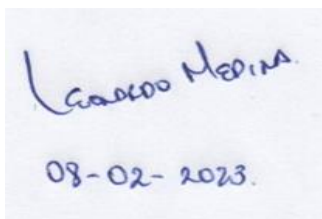 Leonardo Medina.
08-02-2023.